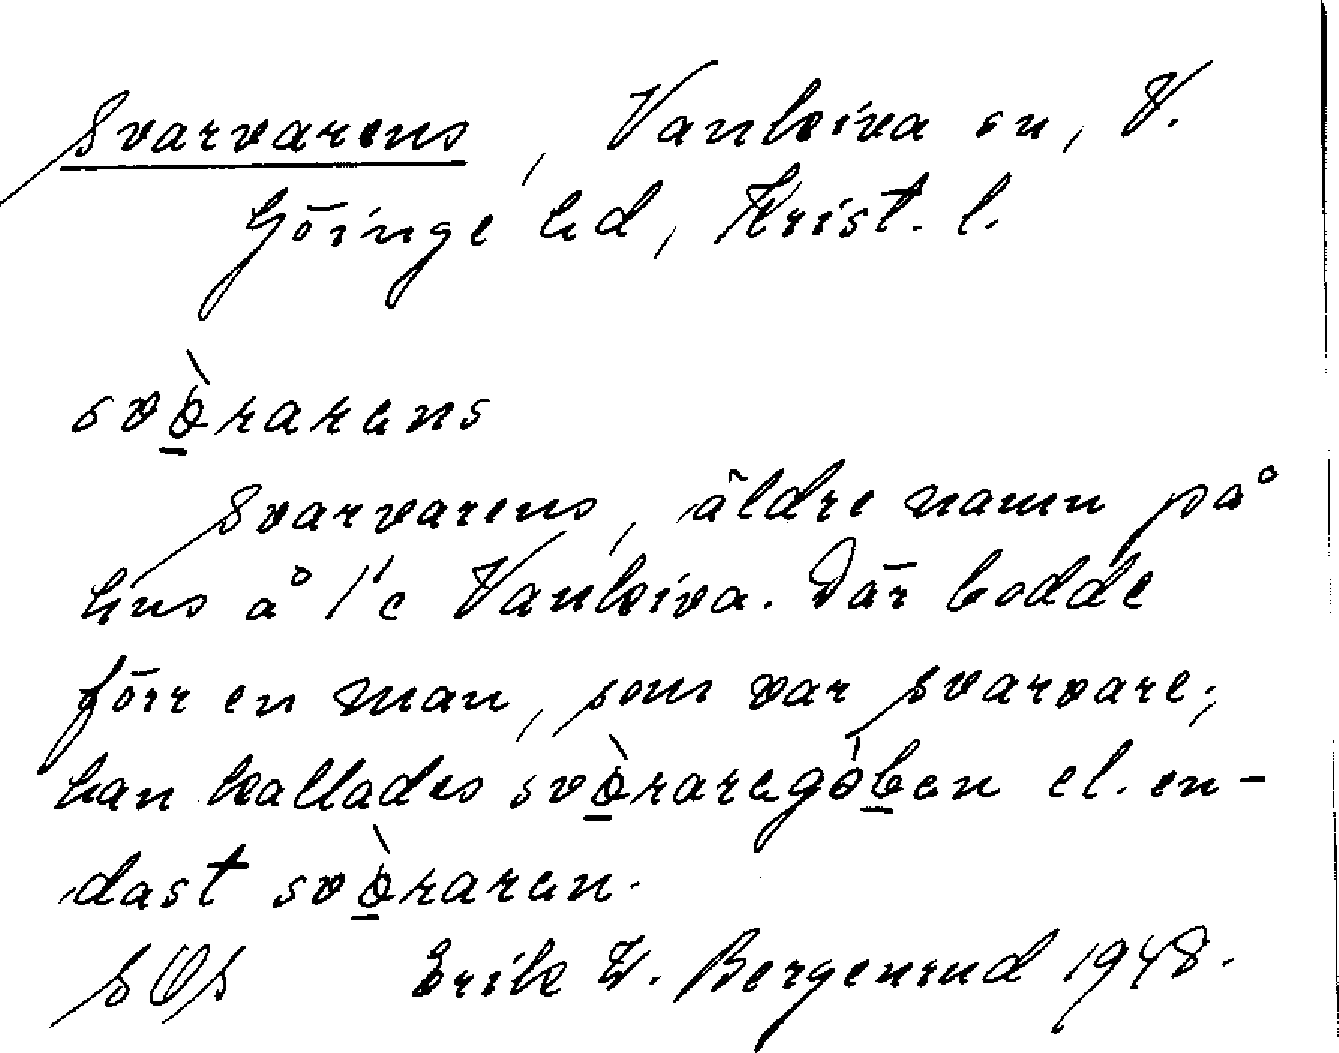 Svarvarens, Vankiva sn, V.
Göinge hd, Krist. l.
svò̱rarens
Svarvarens, äldre namn på
hus å 1/2 Vankiva. Där bodde
förr en man, som var svarvare;
han kallades svò̱raregóben el. en-
dast svò̱raren.
SOS Erik W. Bergenrud 1948.